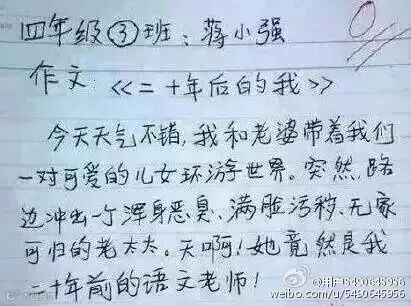 四年级③班：蒋小强
作文：《二十年后的我》
今天天气不错，我和老婆带着我们
一对可爱的儿女环游世界。突然，路
边冲出一个浑身恶臭、满脸污秽、无家
可归的老太太。天啊！她竟然是我
二十年前的语文老师！
@用户5490645956
weibo.com/u/5490645956